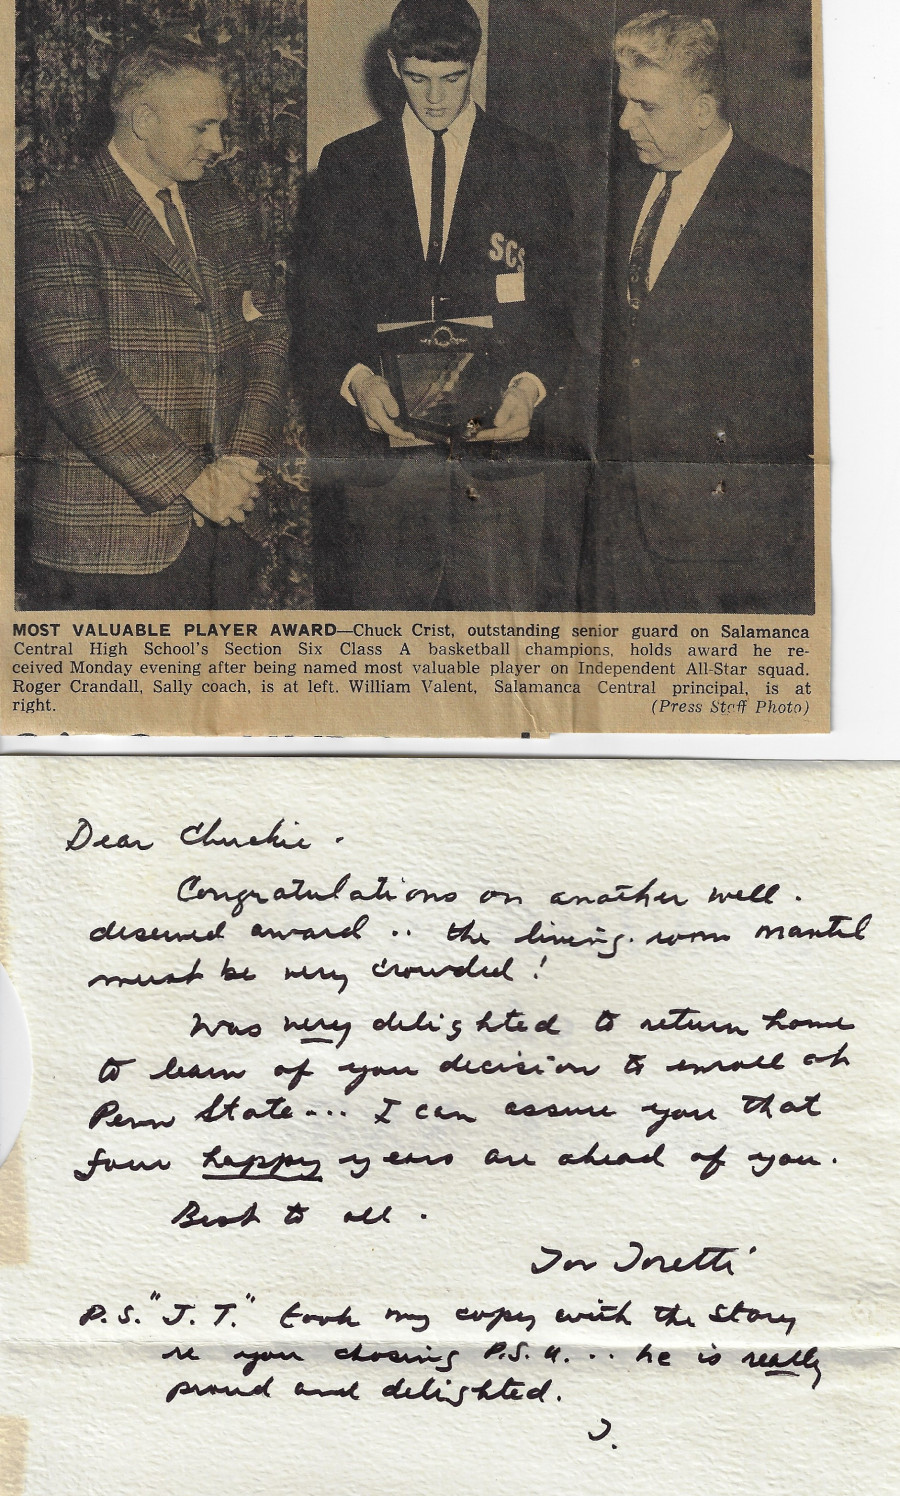 SCS
MOST VALUABLE PLAYER AWARD—Chuck Crist, outstanding senior guard on Salamanca
Central High School's Section Six Class A basketball champions, holds award he re-
ceived Monday evening after being named most valuable player on Independent All-Star squad.
Roger Crandall, Sally coach, is at left. William Valent, Salamanca Central principal, is at
right. (Press Staff Photo)
Dear Chuckie -
Congratulations on another well-
deserved award .. the living-room mantel
must be very crowded!
Was very delighted to return home
to learn of your decision to enroll at
Penn State... I can assure you that
four happy years are ahead of you.
Best to all -
Toretti
P.S. "J.T." took my copy with the story
re your chosing P.S.U. ... he is really
proud and delighted.
J.